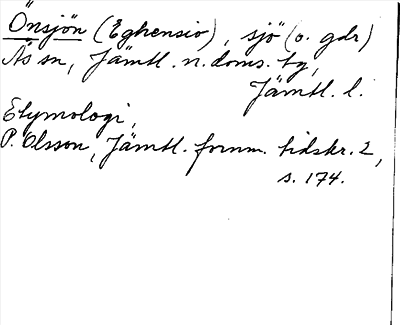 Önsjön (Eghensio), sjö (o. gdr)
Ås sn, Jämtl. n. doms. tg,
Jämtl. l.
Etymologi,
P. Olsson, Jämtl. fornm. tidskr. 2,
s. 174.